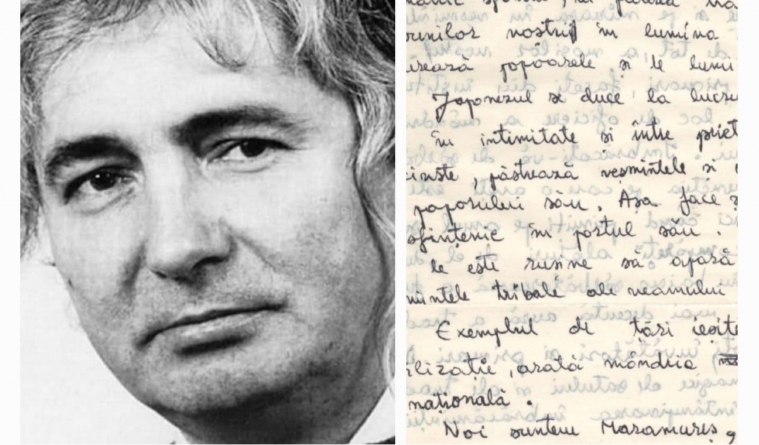 strunilor nostri în lumina
ează popoarele și le lumi
Japonezul se duce la lucru
în intimitate și între priet
cinste, păstrează vesmintele și
poporului său. Așa face
în portul său.
le este rușine să apară
mintele tribale ale neamului
Exemplul de țări ieșite
lizație, arată mândria
națională.
Noi suntem Maramureș,